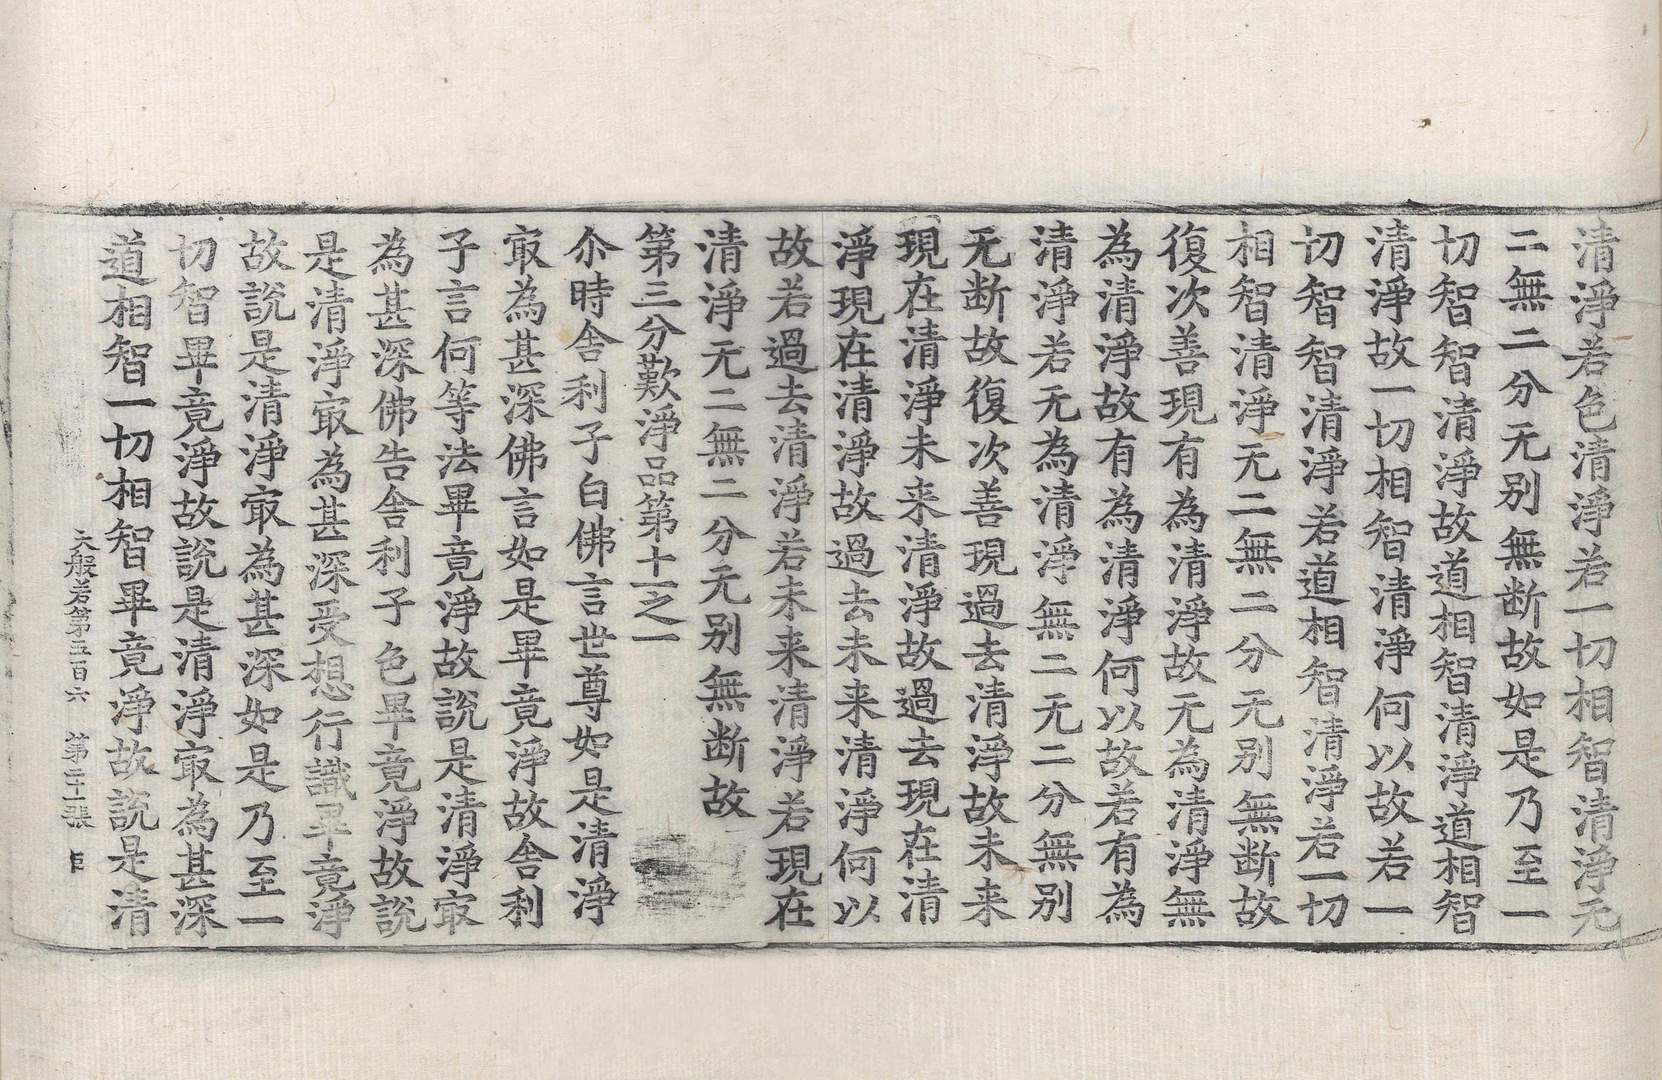 清淨若色清淨若一切相智清淨无
二無二分无别無断故如是乃至一
切智智清淨故道相智清淨道相智
清淨故一切相智清淨何以故若一
切智智清淨若道相智清淨若一切
相智清淨无二無二分无别無断故
復次善現有為清淨故无為清淨無
為清淨故有為清淨何以故若有為
清淨若无為清淨無二无二分無别
无断故復次善現過去清淨故未来
現在清淨未来清淨故過去現在清
淨現在清淨故過去未来清淨何以
故若過去清淨若未来清淨若現在
清淨无二無二分无别無断故
第三分歎淨品第十一之一
尒時舎利子白佛言世尊如是清淨
㝡為甚深佛言如是畢竟淨故舎利
子言何等法畢竟淨故說是清淨㝡
為甚深佛告舎利子色畢竟淨故說
是清淨㝡為甚深受想行識畢竟淨
故說是清淨㝡為甚深如是乃至一
切智畢竟淨故說是清淨㝡為甚深
道相智一切相智畢竟淨故說是清
大般若第五百六 第二十一張 巨